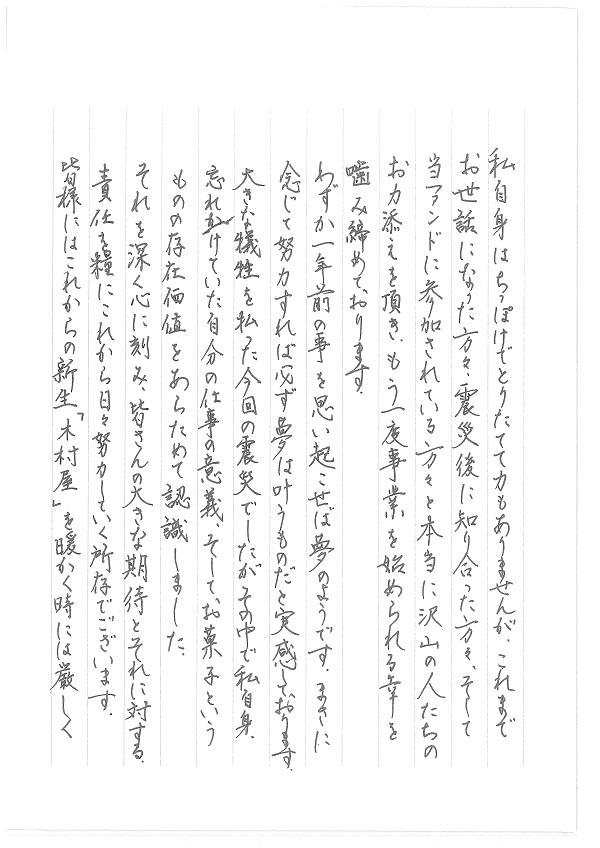 私自身はちっぽけでとりたてて力もありませんが、これまで
お世話になった方々、震災後に知り合った方々、そして
当ファンドに参加されている方々と本当に沢山の人たちの
お力添えを頂き、もう一度事業を始められる幸を
噛み締めております。
わずか一年前の事を思い起こせば夢のようです。まさに
念じて努力すれば必ず夢は叶うものだと実感しております。
大きな犠牲を払った今回の震災でしたがその中で私自身、
忘れかけていた自分の仕事の意義、そしてお菓子という
ものの存在価値をあらためて認識しました。
それを深く心に刻み、皆さんの大きな期待とそれに対する
責任を糧にこれから日々努力していく所存でございます。
皆様にはこれからの新生「木村屋」を暖かく時には厳しく